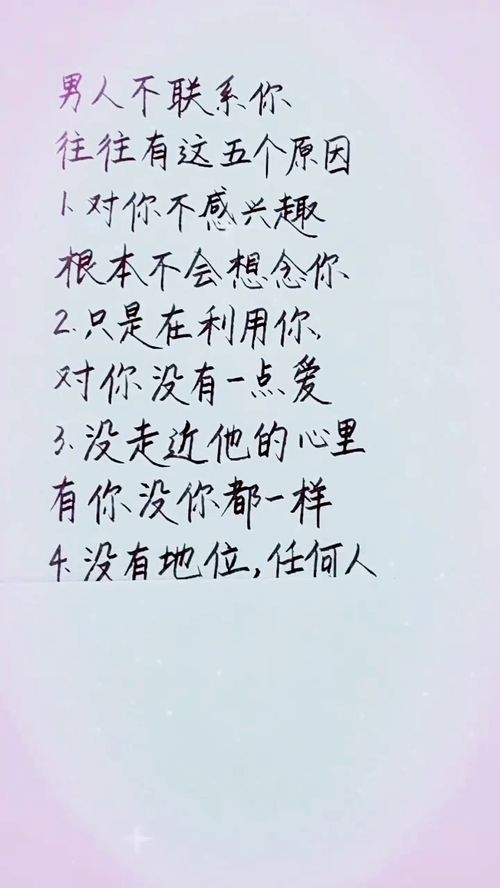 男人不联系你
往往有这五个原因
1.对你不感兴趣
根本不会想念你
2.只是在利用你,
对你没有一点爱
3.没走近他的心里
有你没你都一样
4.没有地位,任何人